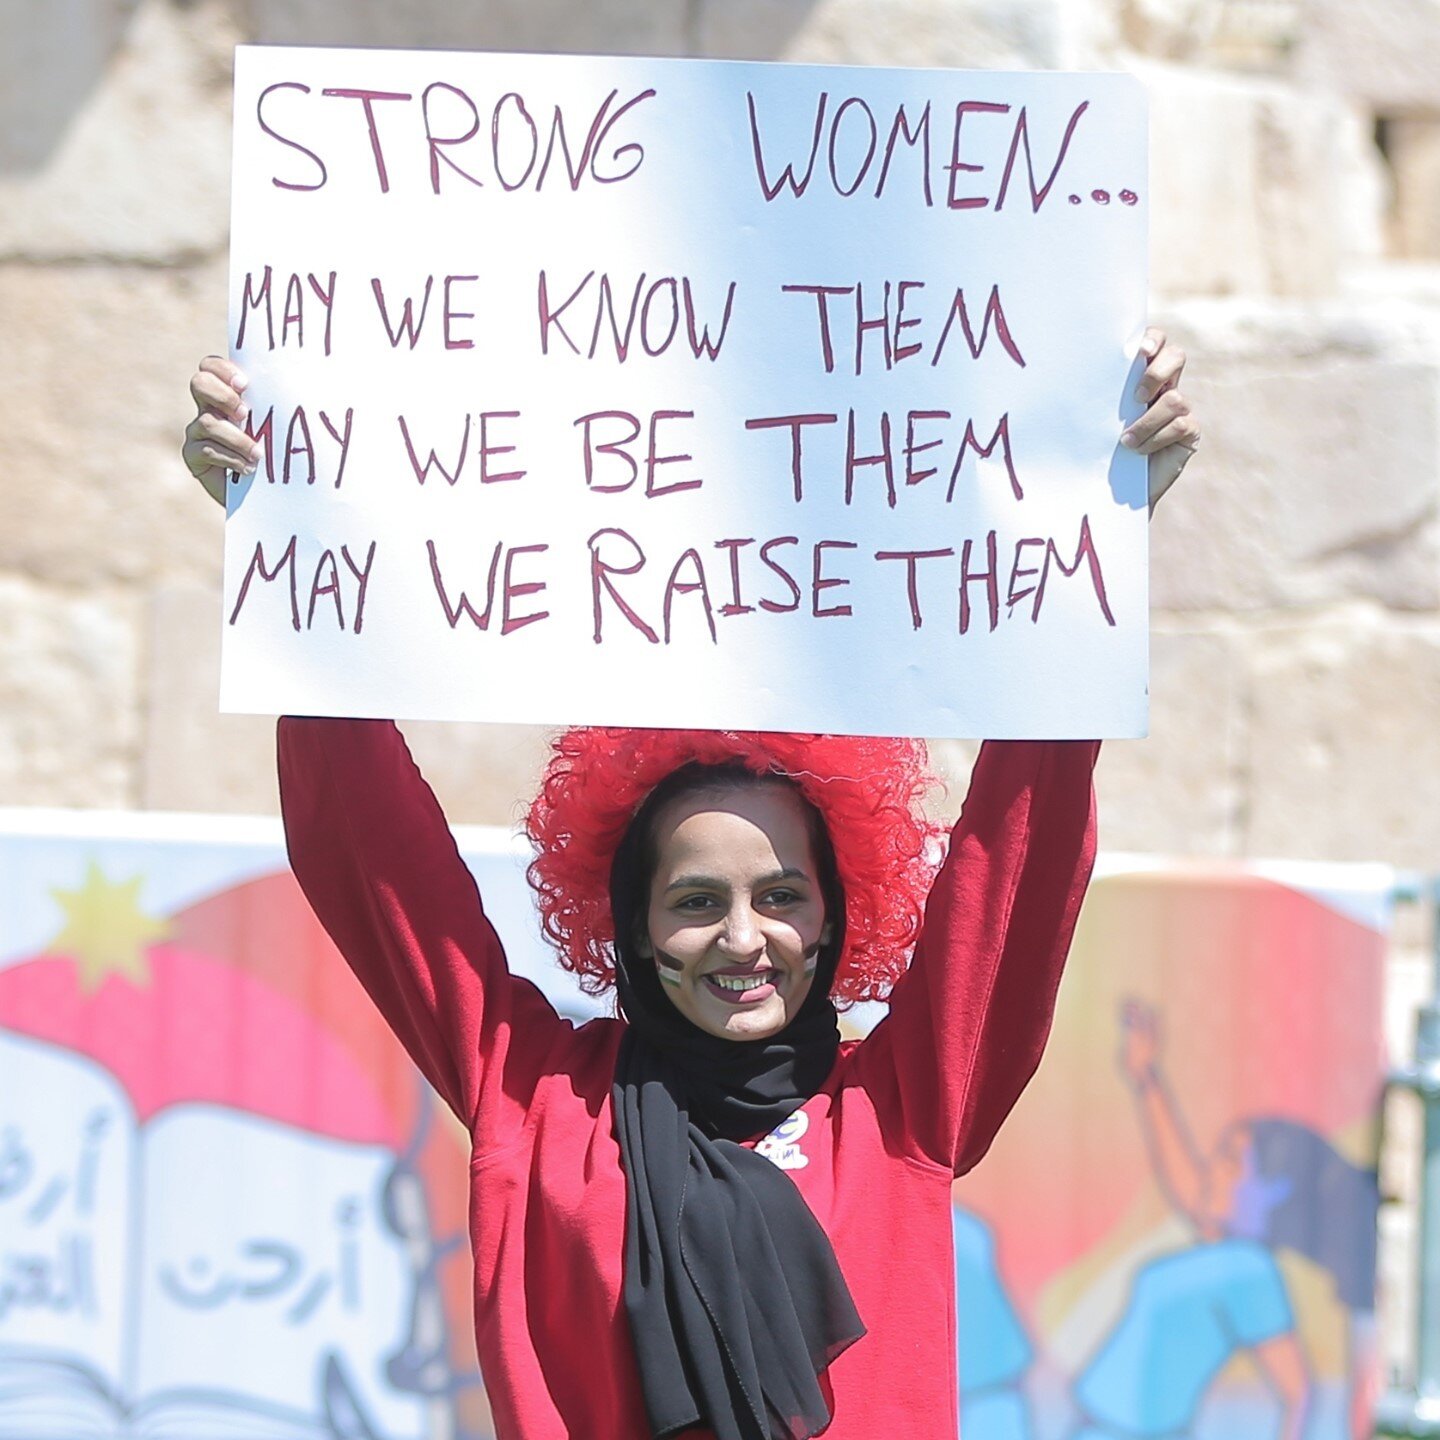 STRONG WOMEN...
MAY WE KNOW THEM
MAY WE BE THEM
MAY WE RAISE THEM
أردن